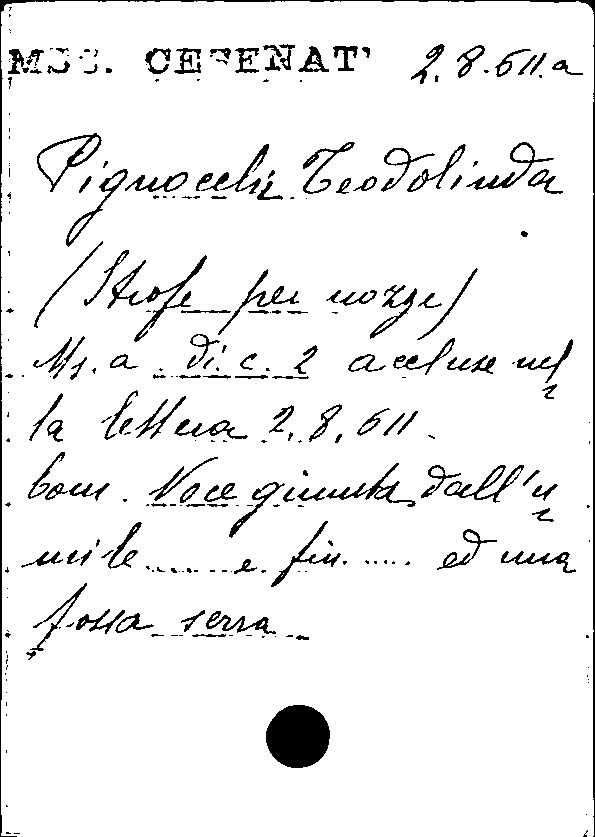 MSS. CESENATI 2.8.611.a
Pignocchi Teodolinda
(Strofe per nozze)
Ms. a di c. 2 accluse nel
la lettera 2.8.611.
Com. Voce giunta dall'u
mile ..... e fin ..... ed una
fossa serra